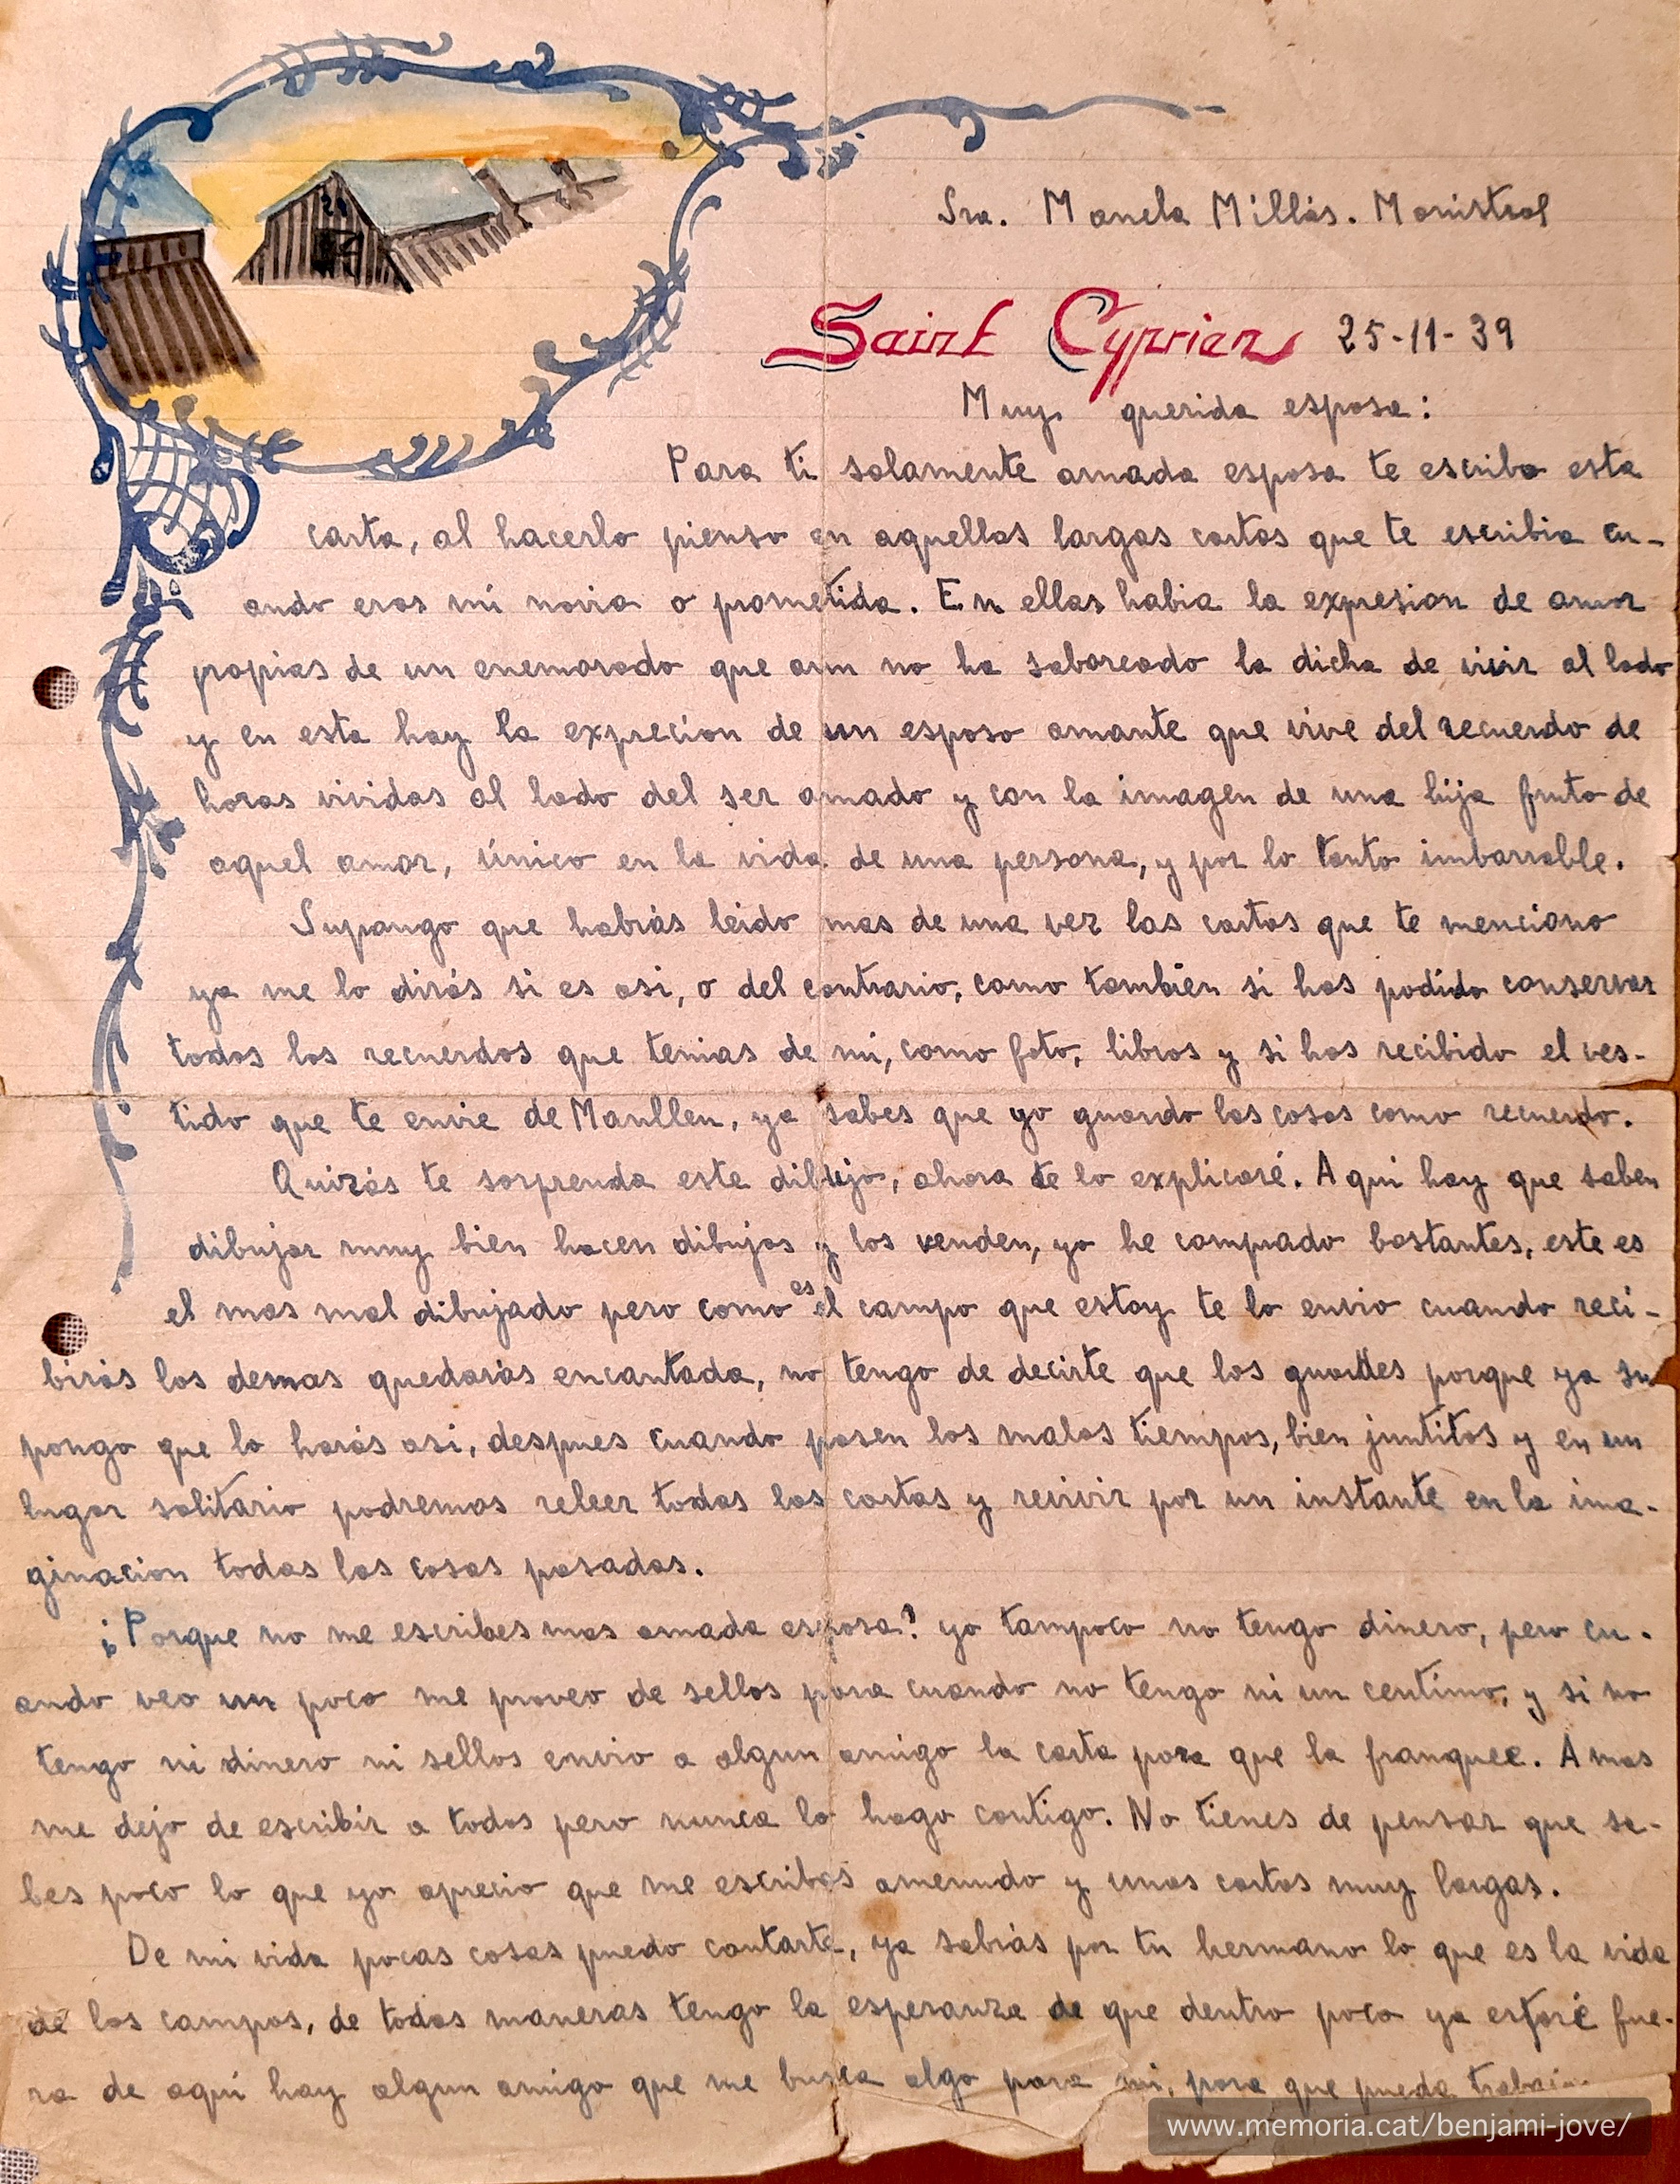 Sra. Manela Millás. Monistrol
Saint Cyprien 25-11-39
Muy querida esposa:
Para ti solamente amada esposa te escribo esta
carta, al hacerlo pienso en aquellas largas cartas que te escribia cu-
ando eras mi novia o prometida. En ellas habia la expresion de amor
propias de un enemorado que aun no ha saboreado la dicha de vivir al lado
y en esta hay la exprecion de un esposo amante que vive del recuerdo de
horas vividas al lado del ser amado y con la imagen de una hija fruto de
aquel amor, único en la vida de una persona, y por lo tanto imbarrable.
Supongo que habrás leido mas de una vez las cartas que te menciono
ya me lo dirás si es asi, o del contrario, como tambien si has podido conservar
todos los recuerdos que tenias de mi, como foto, libros y si has recibido el ves-
tido que te envie de Manllen, ya sabes que yo guardo las cosas como recuerdo.
Quizás te sorprenda este dibujo, ahora te lo explicaré. Aqui hay que saben
dibujar muy bien hacen dibujos y los venden, yo he comprado bastantes, este es
el mas mal dibujado pero como es el campo que estoy te lo envio cuando reci-
birás los demas quedarás encantada, no tengo de decirte que los guardes porque ya su
pongo que lo harás asi, despues cuando pasen los malos tiempos, bien juntitos y en un
lugar solitario podremos releer todas las cartas y revivir por un instante en la ima-
ginacion todas las cosas pasadas.
¿Porque no me escribes mas amada esposa? yo tampoco no tengo dinero, pero cu-
ando veo un poco me proveo de sellos para cuando no tengo ni un centimo, y si no
tengo ni dinero ni sellos envio a algun amigo la carta para que la franquee. A mas
me dejo de escribir a todos pero nunca lo hago contigo. No tienes de pensar que sa-
bes poco lo que yo aprecio que me escribas amenudo y unas cartas muy largas.
De mi vida pocas cosas puedo contarte, ya sabrás por tu hermano lo que es la vida
de los campos, de todas maneras tengo la esperanza de que dentro poco ya estaré fue-
ra de aqui hay algun amigo que me busca algo para mi, para que pueda
www.memoria.cat/benjami-jove/